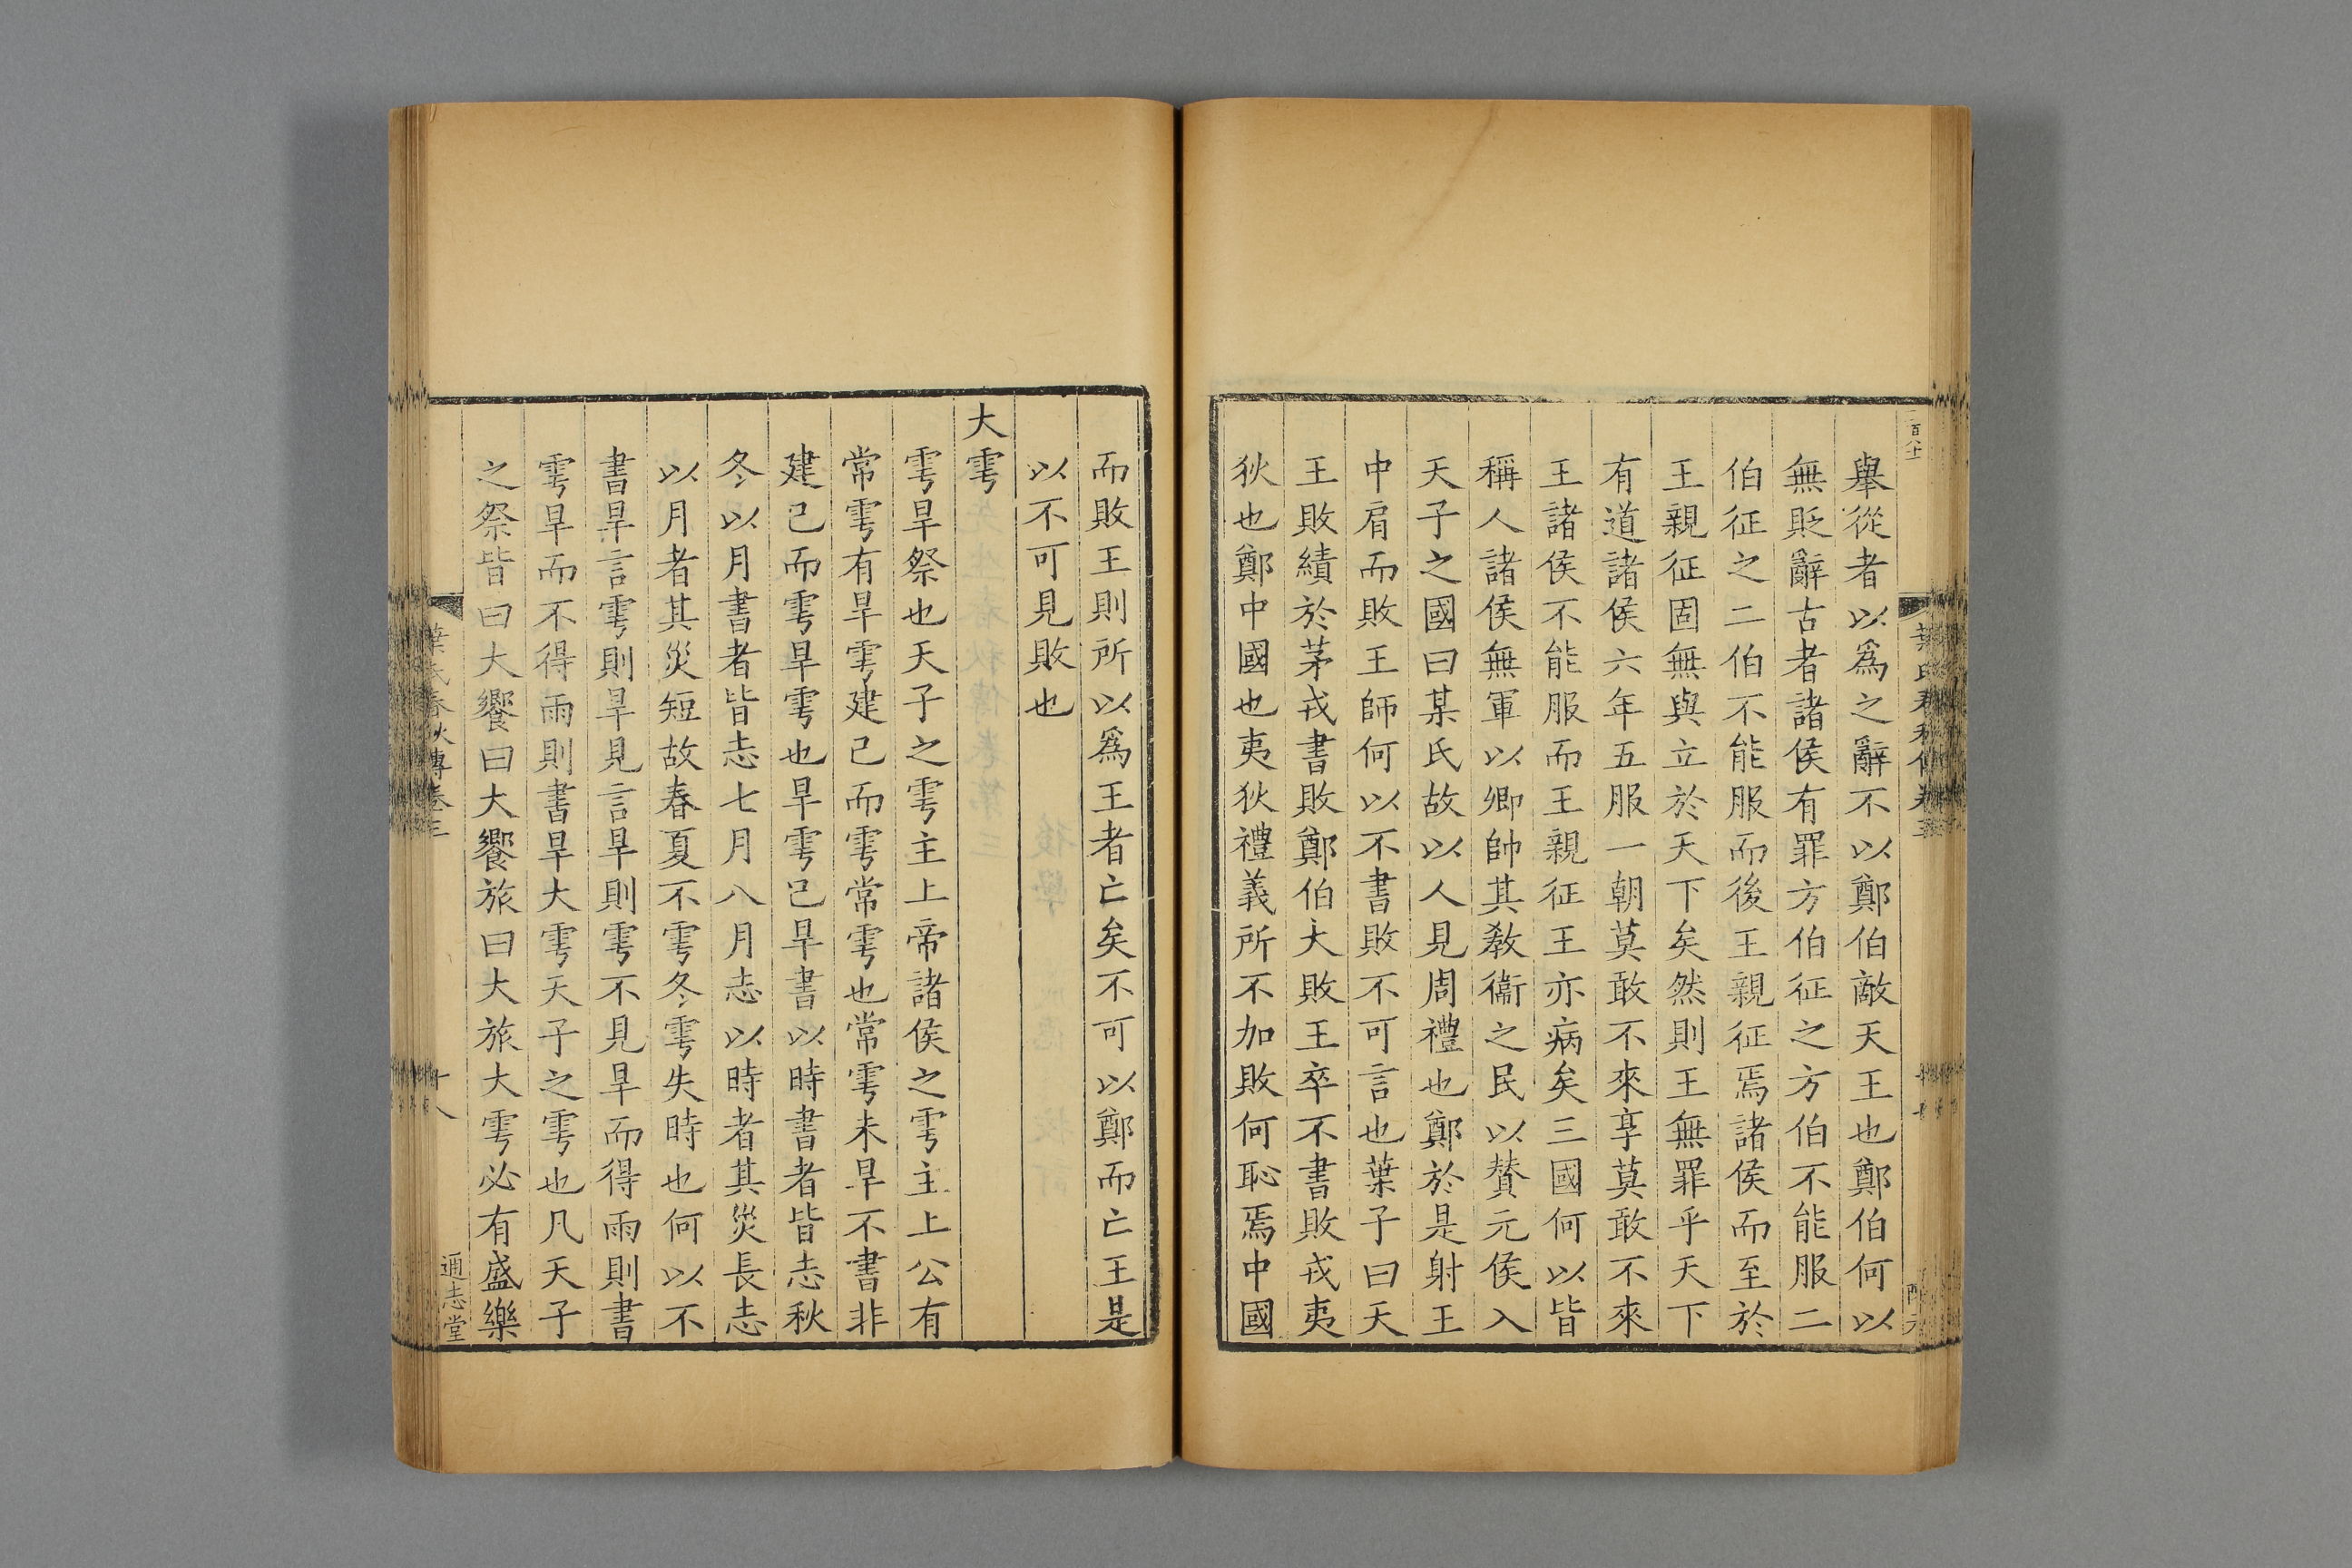 舉從者以爲之辭不以鄭伯敵天王也鄭伯何以
無貶辭古者諸侯有罪方伯征之方伯不能服二
伯征之二伯不能服而後王親征焉諸侯而至於
王親征固無與立於天下矣然則王無罪乎天下
有道諸侯六年五服一朝莫敢不來享莫敢不來
王諸侯不能服而王親征王亦病矣三國何以皆
稱人諸侯無軍以卿帥其敎衞之民以贊元侯入
天子之國曰某氏故以人見周禮也鄭於是射王
中肩而敗王師何以不書敗不可言也葉子曰天
王敗績於茅戎書敗鄭伯大敗王卒不書敗戎夷
狄也鄭中國也夷狄禮義所不加敗何恥焉中國
而敗王則所以爲王者亡矣不可以鄭而亡王是
以不可見敗也
大雩
雩旱祭也天子之雩主上帝諸侯之雩主上公有
常雩有旱雩建巳而雩常雩也常雩未旱不書非
建巳而雩旱雩也旱雩已旱書以時書者皆志秋
冬以月書者皆志七月八月志以時者其災長志
以月者其災短故春夏不雩冬雩失時也何以不
書旱言雩則旱見言旱則雩不見旱而得雨則書
雩旱而不得雨則書旱大雩天子之雩也凡天子
之祭皆曰大饗曰大饗旅曰大旅大雩必有盛樂
葉氏春秋傳卷三
十八
通志堂